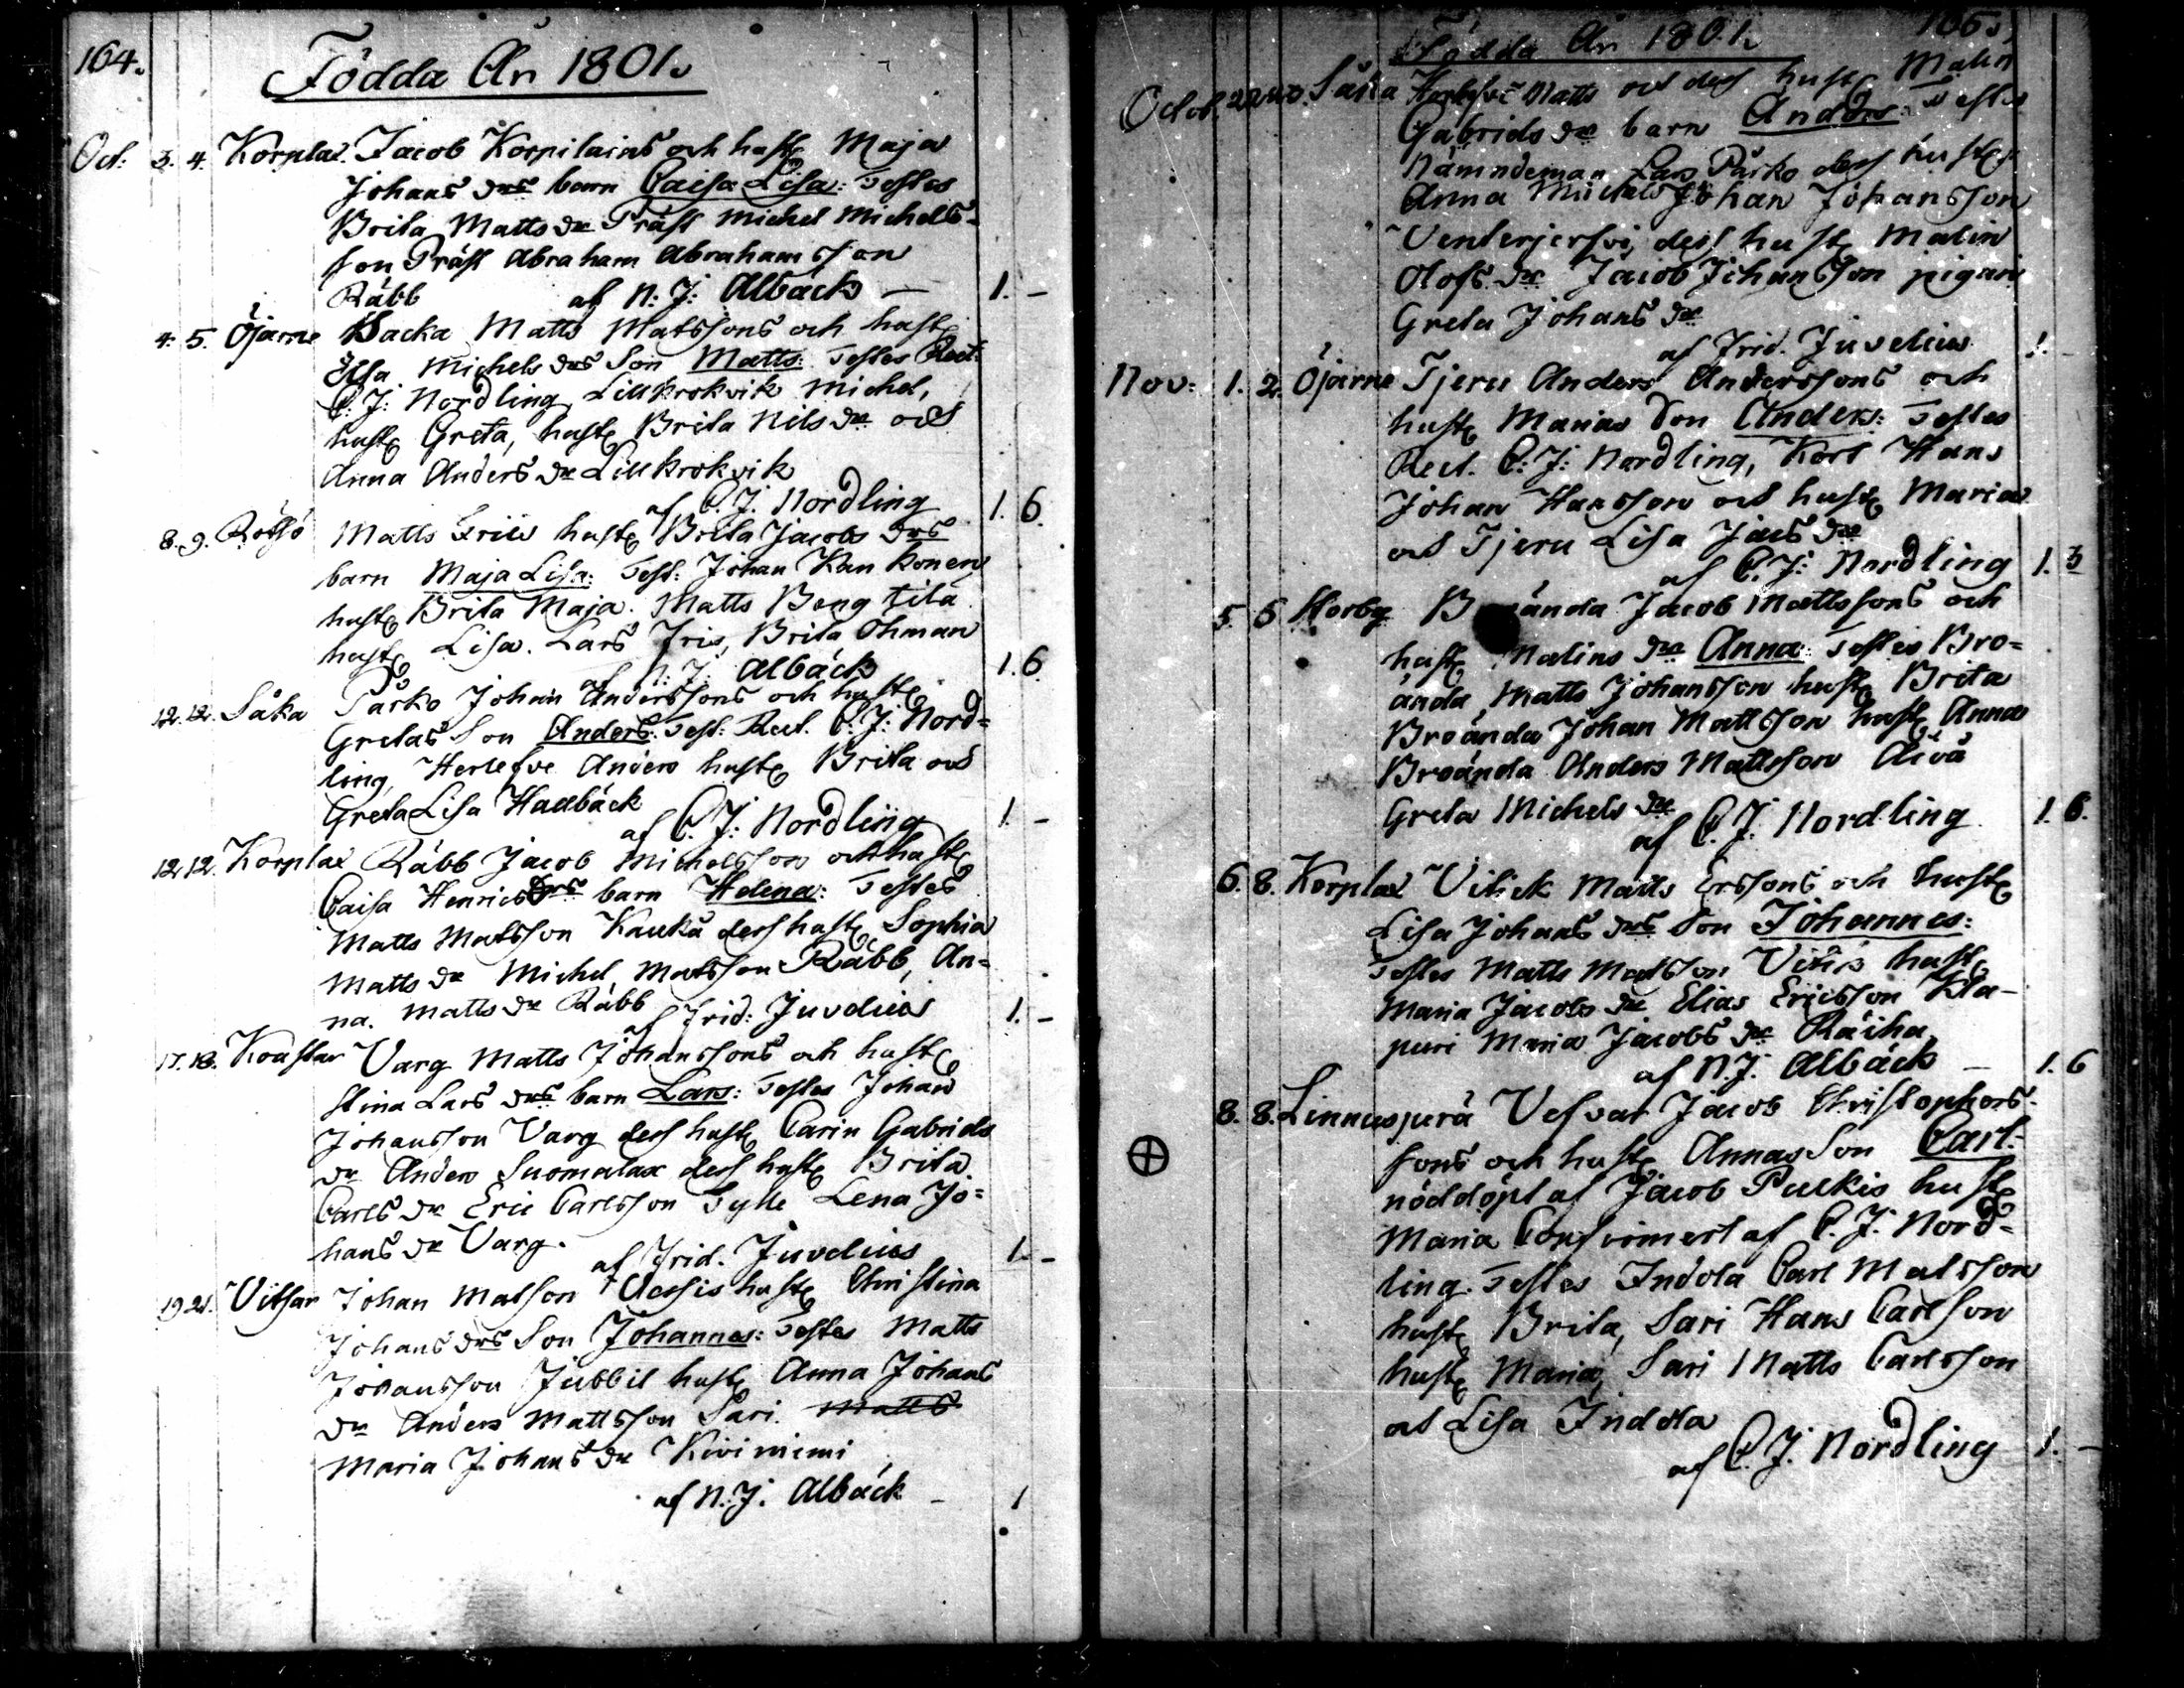 164.
Födda År 1801.
Oct: 3. 4. Korplax. Jacob Korpilains och hust. Maja
Johans drs barn Caisa Lisa: Testes
Brita Matts dr Präst Michel Michels-
son Präst Abraham Abrahamsson
Räbb af N: J: Albäck — 1. —
4. 5. Öjarne Backa Matts Matssons och hust.
Elsa Michels drs Son Matts: Testes Rect:
C: J: Nordling, Lillkrokvik Michel,
hust. Greta, hust. Brita Nils dr och
Anna Anders dr Lillkrokvik
af C. J. Nordling 1. 6.
8. 9. Rötsö Matts Friis hust. Brita Jacobs drs
barn Maja Lisa: Test: Johan Kunkonen
hust. Brita Maja. Matts Bengtila
hust. Lisa. Lars Fris, Brita Ohman
af N: J: Albäck 1. 6.
12. 12. Såka Parko Johan Anderssons och hust.
Gretas Son Anders: Test: Rect. C: J: Nord-
ling, Herlefve Anders hust. Brita och
Greta Lisa Hallbäck
af C. J: Nordling 1. —
12. 12. Korplax Räbb Jacob Michelsson och hust.
Caisa Henrics drs barn Helena: Testes
Matts Matsson Kaukå dess hust. Sophia
Matts dr Michel Matsson Räbb, An-
na. Matts dr Räbb
af Frid: Juvelius 1. —
17. 18. Koustar Varg Matts Johanssons och hust.
Stina Lars drs barn Lars: Testes Johan
Johansson Varg dess hust. Carin Gabriels
dr Anders Suomalax dess hust. Brita
Carls dr Eric Carlsson Tylle Lena Jo-
hans dr Varg.
af Frid. Juvelius 1. —
19. 21. Vitsar Johan Matson hust. Christina
Johans drs Son Johannes: Testes Matts
Johansson Jubbil hust. Anna Johans
dr Anders Mattsson Sari. Matts
Maria Johans dr Kiviniemi
af N. J. Albäck — 1
165.
Födda År 1801.
Octob. 22 Såka Matts och dess hust. Malin
Gabriels dr barn Anders Testes
Nämndeman Lars Parko dess hust.
Anna Michels Johan Johansson
Ventarjersvi dess hust. Malin
Olofs dr Jacob Johansson pigan
Greta Johans dr
af Frid. Juvelius 1. —
Nov: 1. 2. Öjarne Tjeru Anders Anderssons och
hust. Marias Son Anders: Testes
Rect. C: J: Nordling, Kors Hans
Johan Hansson och hust. Maria
och Tjeru Lisa Jacs dr
af C. J: Nordling 1. 3
5. 6 Norby Broända Jacob Mattssons och
hust. Malins dr Anna: Testes Bro-
ända Matts Johansson hust. Brita
Broända Johan Mattsson hust. Anna
Broända Anders Mattsson
Greta Michels dr
af C. J. Nordling 1. 6.
6. 8. Korplax Vitick Matts Erssons och hust.
Lisa Johans drs Son Johannes:
Testes Matts Matsson hust.
Maria Jacobs dr Elias Ericsson Kla-
puri Maria Jacobs dr Räiha
af N. J. Albäck — 1. 6
8. 8. Linnuspurä Vefvar Jacob Christophers-
sons och hust. Annas Son Carl:
nöddöpt af Jacob Pulkis hust.
Maria Confirmert af C. J. Nord-
ling. Testes Indola Carl Matsson
hust. Brita, Sari Hans Carlson
hust. Maria, Sari Matts Carlsson
och Lisa Indola
af C. J. Nordling 1. —